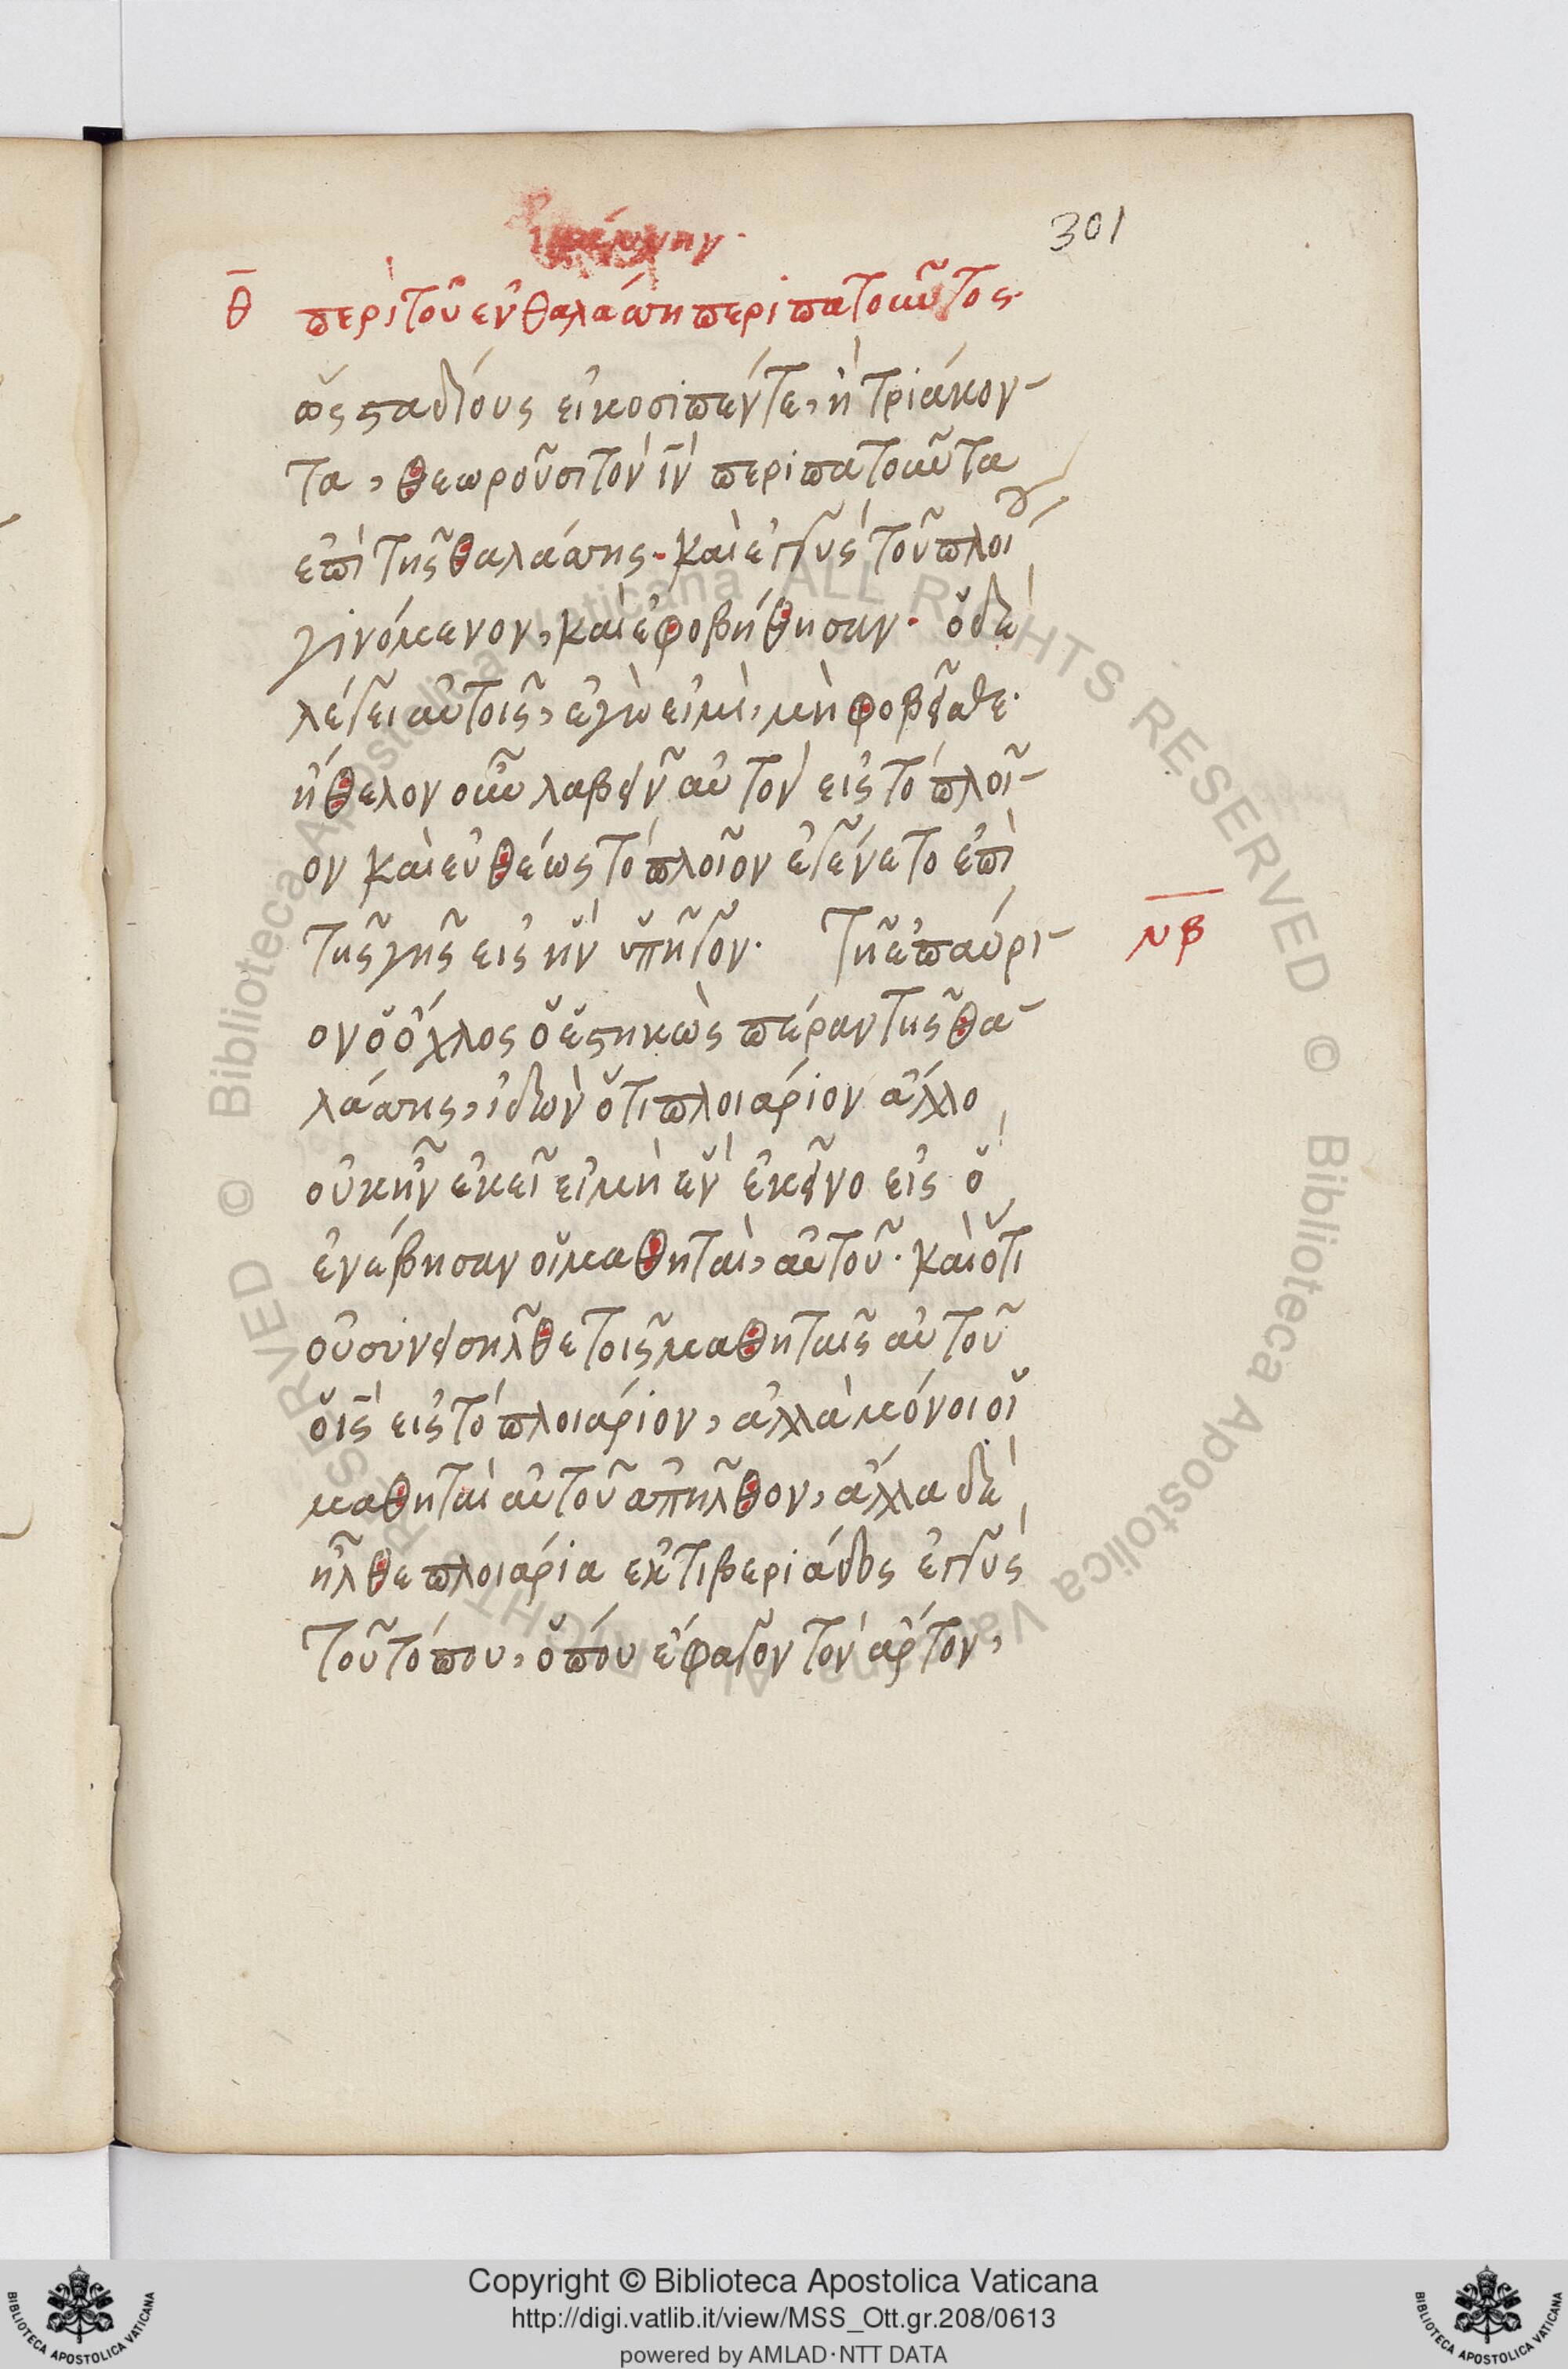 301
θ περὶ τοῦ ἐν θαλάσσῃ περιπατοῦντος.
ὡς σταδίους εἰκοσιπέντε, ἢ τριάκον-
τα, θεωροῦσι τὸν ἰν περιπατοῦντα
ἐπὶ τῆς θαλάσσης. καὶ ἐγγὺς τοῦ πλοίου
γινόμενον, καὶ ἐφοβήθησαν. ὁ δὲ
λέγει αὐτοῖς, ἐγὼ εἰμὶ, μὴ φοβεῖσθε.
ἤθελον οὖν λαβεῖν αὐτὸν εἰς τὸ πλοῖ-
ον καὶ εὐθέως τὸ πλοῖον ἐγένετο ἐπὶ
τῆς γῆς εἰς ἣν ὑπῆγον. Τῇ ἐπαύρι-
ον ὁ ὄχλος ὁ ἑστηκὼς πέραν τῆς θα-
λάσσης, ἰδὼν ὅτι πλοιάριον ἄλλο
οὐκ ἦν ἐκεῖ εἰ μὴ ἓν ἐκεῖνο εἰς ὃ
ἐνέβησαν οἱ μαθηταὶ, αὐτοῦ. καὶ ὅτι
οὐ συνεισῆλθε τοῖς μαθηταῖς αὐτοῦ
ὁ ις εἰς τὸ πλοιάριον, ἀλλὰ μόνοι οἱ
μαθηταὶ αὐτοῦ ἀπῆλθον, ἄλλα δὲ
ἦλθε πλοιάρια ἐκ τιβεριάδος ἐγγὺς
τοῦ τόπου, ὅπου ἔφαγον τὸν ἄρτον,
νβ
© Biblioteca Apostolica Vaticana ALL RIGHTS RESERVED
Copyright © Biblioteca Apostolica Vaticana
http://digi.vatlib.it/view/MSS_Ott.gr.208/0613
powered by AMLAD·NTT DATA
BIBLIOTECA APOSTOLICA VATICANA
BIBLIOTECA APOSTOLICA VATICANA